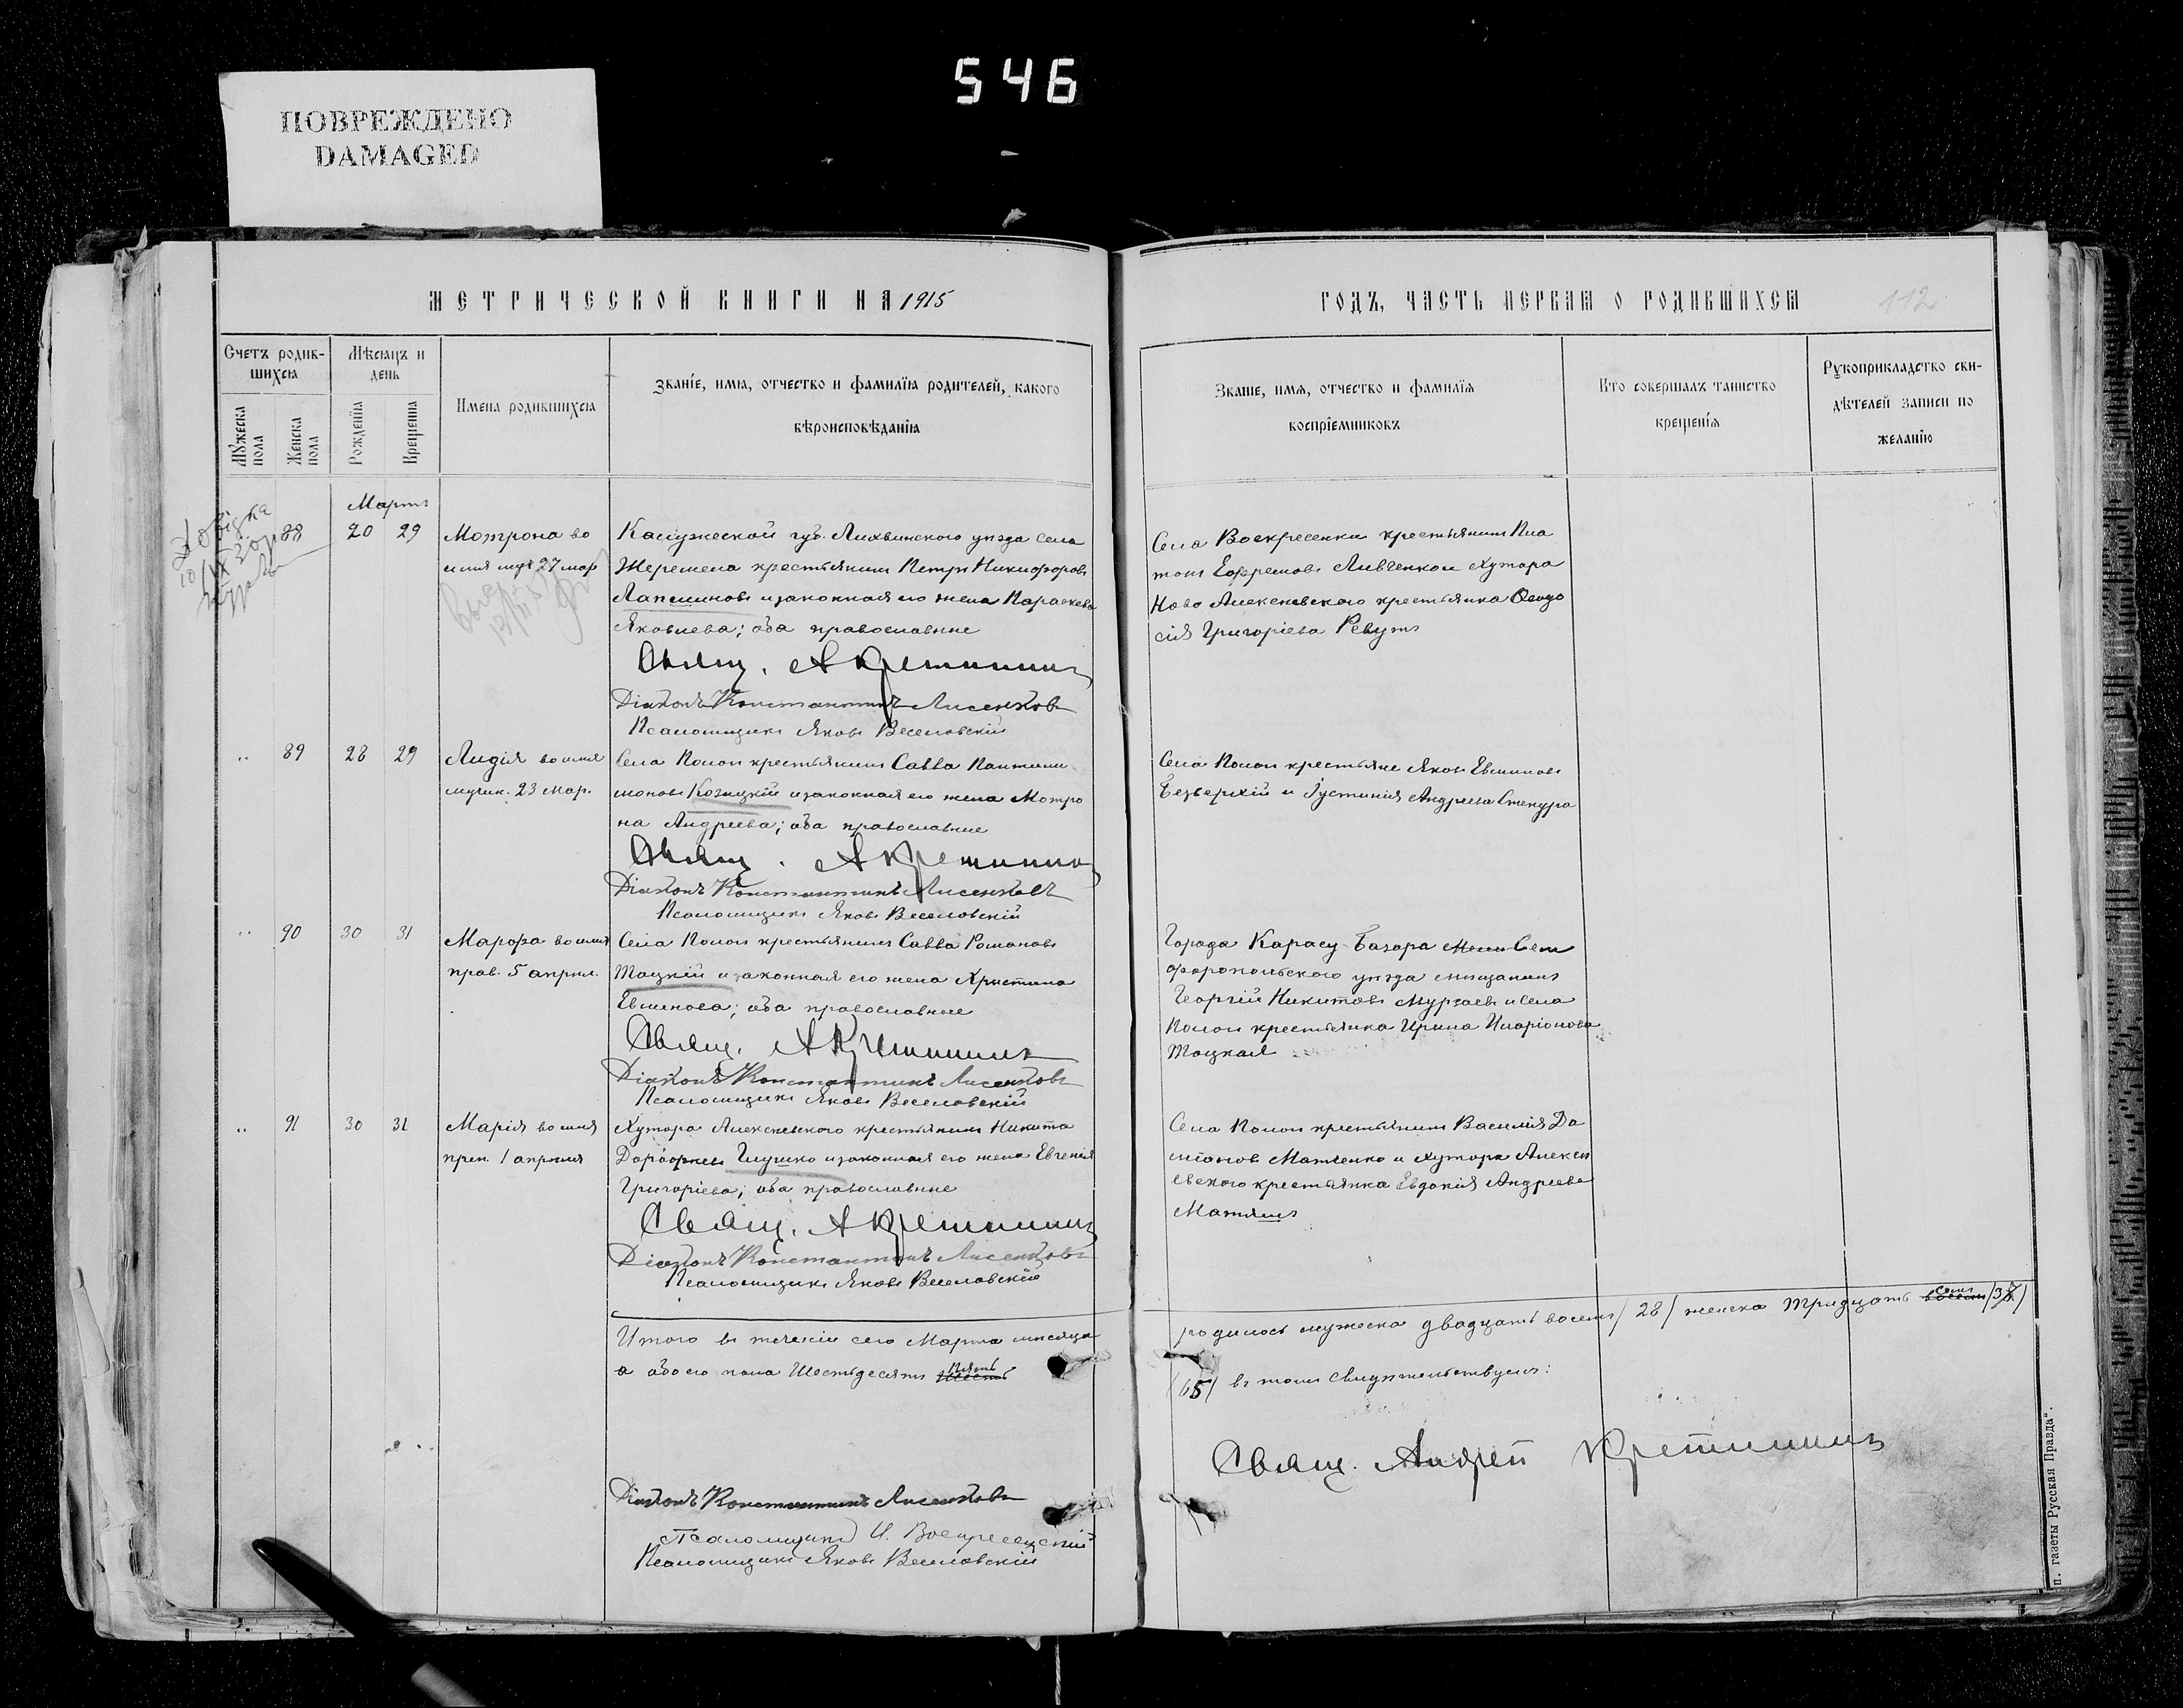 546
ПОВРЕЖДЕНО
DAMAGED
МЕТРИЧЕСКОЙ КНИГИ НА 1915
ГОДЪ, ЧАСТЬ ПЕРВАЯ О РОДИВШИХСЯ
112
Счетъ родившихся
Мѣсяцъ и день
Мужеска пола
Женска пола
Рожденія
Крещенія
Имена родившихся
Званіе, имя, отчество и фамилія родителей, какого
вѣроисповѣданія
Званіе, имя, отчество и фамилія
воспріемниковъ
Кто совершалъ таинство
крещенія
Рукоприкладство сви-
дѣтелей записи по
желанію
Мартъ
Довідка
88 20 29
Мотрона во
имя муч 27 мар
Калужской губ. Лихвинского уѣзда села
Жеремела крестьянинъ Петръ Никифоровъ
Лапшиновъ и законная его жена Параскева
Яковлева; оба православные
Свящ. А Кретининъ
Діаконъ Константинъ Лисенковъ
Псаломщикъ Яковъ Веселовскій
Села Воскресенки крестьянинъ Пла
тонъ Ефремовъ Ливченко и Хутора
Ново Алексеевского крестьянка Феодо
сія Григоріева Ревутъ
" 89 28 29
Лидія во имя
мучен. 23 мар.
Села Пологи крестьянинъ Савва Пантили
моновъ Козицкій и законная его жена Мотро
на Андреева; оба православные
Свящ. А Кретининъ
Діаконъ Константинъ Лисенковъ
Псаломщикъ Яковъ Веселовскій
Села Пологи крестьяне Яковъ Евфимовъ
Безверхій и Іустинія Андреева Стекура
" 90 30 31
Марфа во имя
прав. 5 април.
Села Пологи крестьянинъ Савва Романовъ
Тоцкій и законная его жена Христина
Евфимова; оба православные
Свящ. А Кретининъ
Діаконъ Константинъ Лисенковъ
Псаломщикъ Яковъ Веселовскій
Города Карасу-Базара Сим
форопольского уѣзда мещанинъ
Георгій Никитовъ Мурзаевъ и села
Пологи крестьянка Ирина Иларіонова
Тоцкая
" 91 30 31
Марія во имя
преп. 1 апреля
Хутора Алексеевского крестьянинъ Никита
Дорофеевъ Глушко и законная его жена Евгенія
Григоріева; оба православные
Свящ. А Кретининъ
Діаконъ Константинъ Лисенковъ
Псаломщикъ Яковъ Веселовскій
Села Пологи крестьянинъ Василій Да
міановъ Матвенко и хутора Алексе
евского крестьянка Евдокія Андреева
Матяшъ
Итого въ теченіи сего Марта месяца
родилось мужеска двадцать восемь /28/ женска тридцать восемь семь /37/
а обоего пола Шестьдесятъ шесть пять
/65/ въ томъ свидѣтельствуемъ:
Свящ. Андрей Кретининъ
Діаконъ Константинъ Лисенковъ
Псаломщикъ И. Воскресенскій
Псаломщикъ Яковъ Веселовскій
п. газеты Русская Правда".